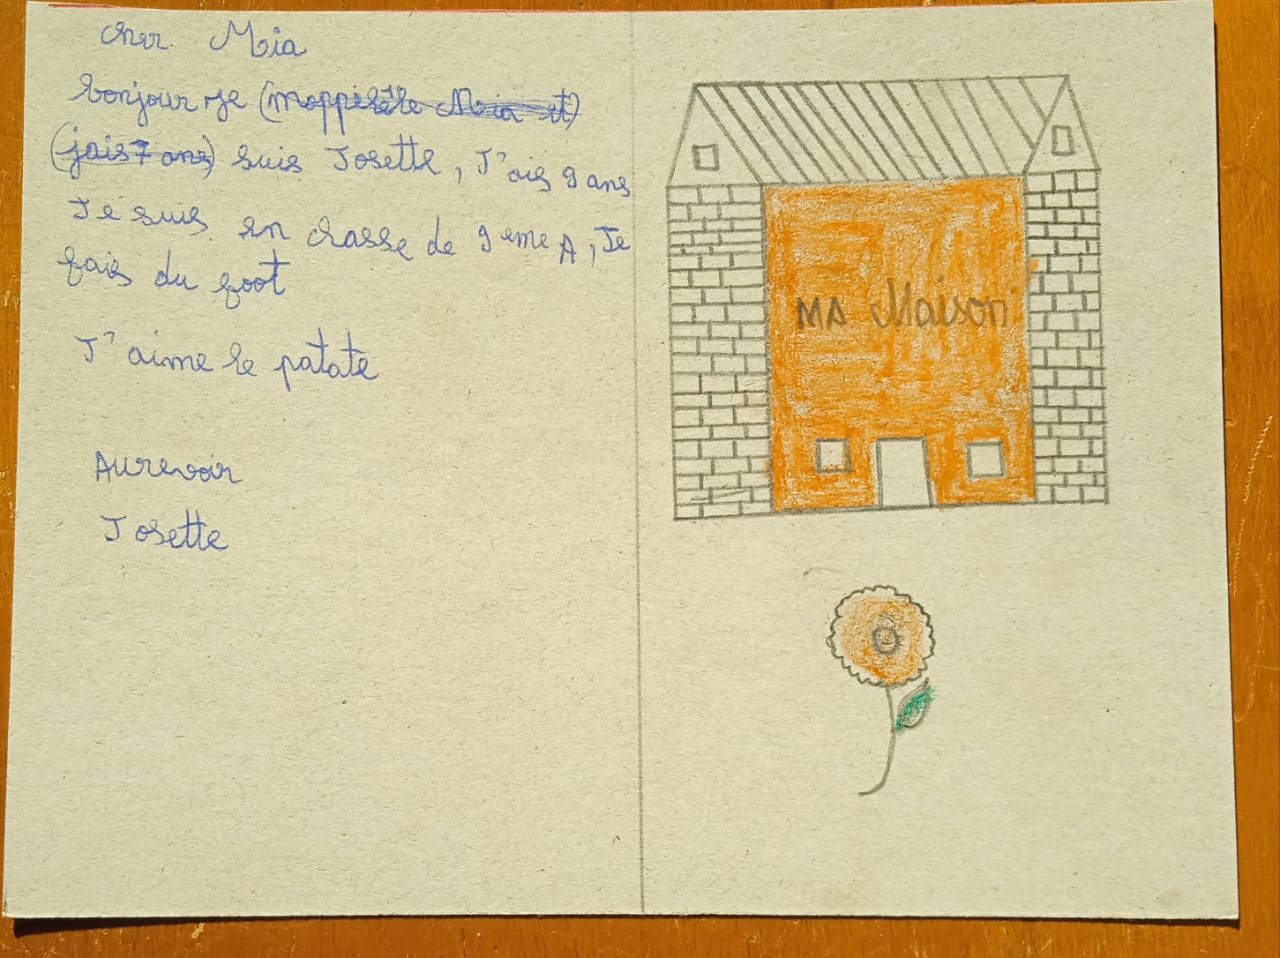 cher Mia
bonjour je (mappelle Mia et)
(jais 7 ans) suis Josette, J'ais 9 ans
Je suis en classe de 9 eme A, Je
fais du foot
J'aime le patate
Aurevoir
Josette
MA Maison